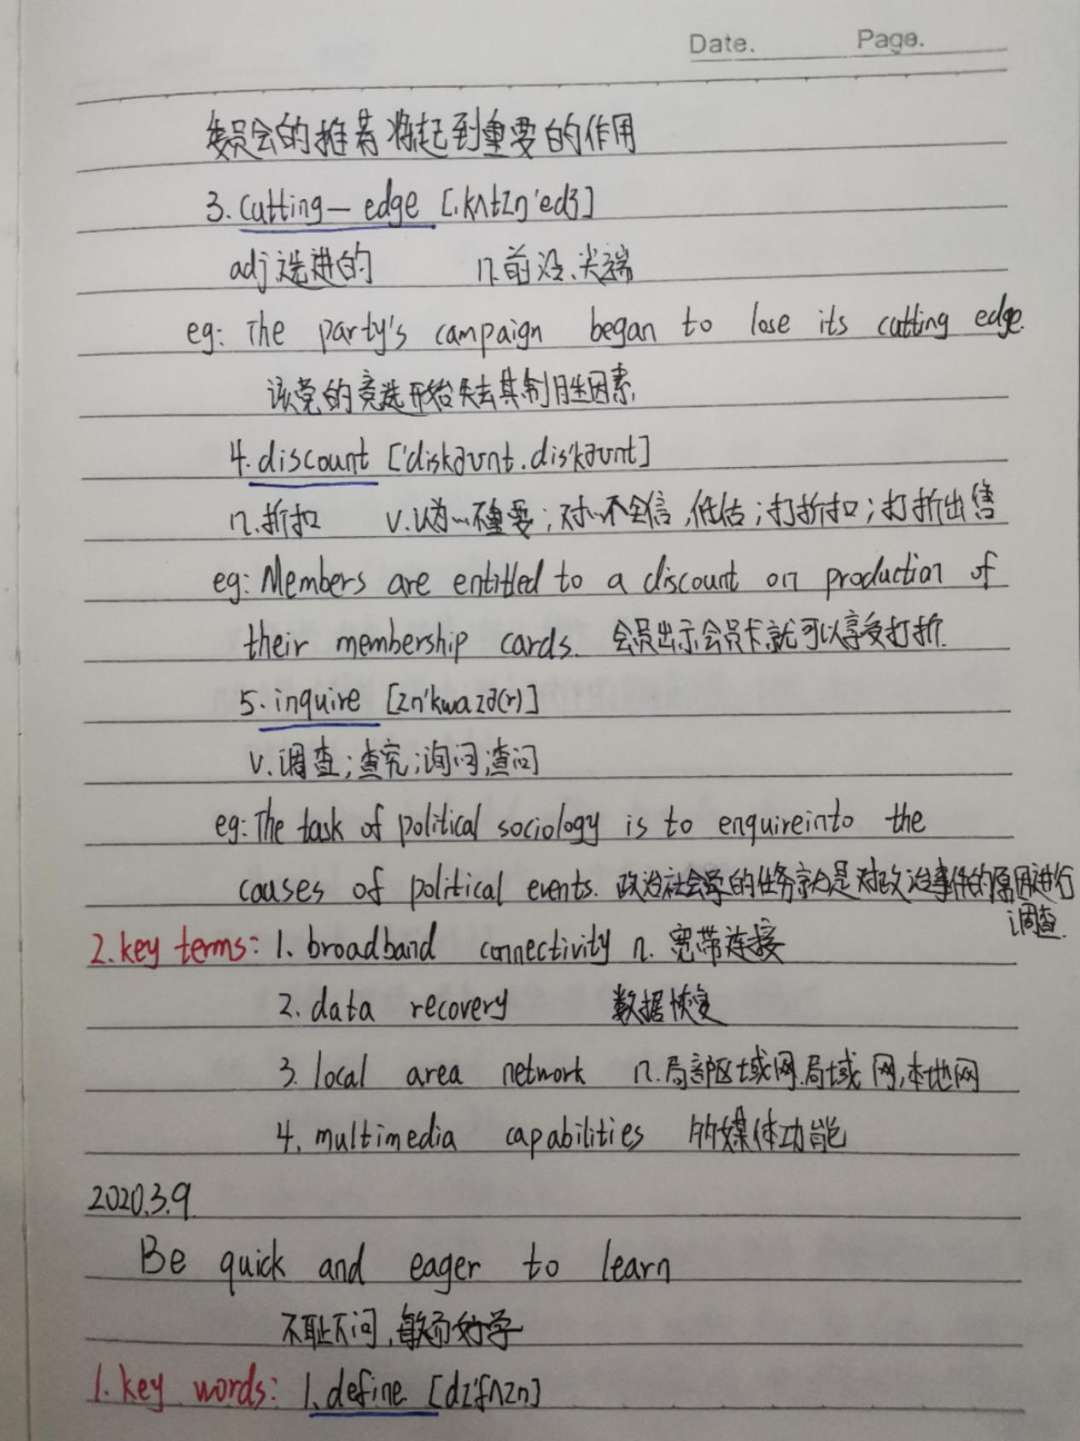 Date. Page.
委员会的推荐将起到重要的作用
3. cutting—edge [.kʌtɪŋ'edʒ]
adj 先进的 n.前沿、尖端
eg: The party's campaign began to lose its cutting edge.
该党的竞选开始失去其制胜因素
4. discount ['diskaʊnt.dis'kaʊnt]
n.折扣 v.认为…不重要；对…不全信,低估；打折扣；打折出售
eg: Members are entitled to a discount on production of
their membership cards. 会员出示会员卡就可以享受打折.
5. inquire [ɪn'kwaɪə(r)]
v.调查；查究；询问；查问
eg: The task of political sociology is to enquireinto the
causes of political events. 政治社会学的任务就是对政治事件的原因进行
调查.
2. key terms: 1. broadband connectivity n. 宽带连接
2. data recovery 数据恢复
3. local area network n.局部区域网.局域网,本地网
4. multimedia capabilities 的媒体功能
2020.3.9.
Be quick and eager to learn
不耻下问,敏而好学
1. key words: 1. define [dɪ'fʌɪn]